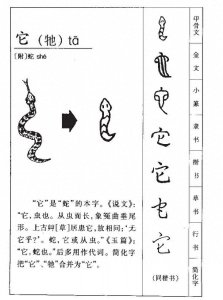 它（牠）tā
[附]蛇 shé
“它”是“蛇”的本字。《说文》：
“它，虫也。从虫而长，象冤曲垂尾
形。上古艸[草]居患它，故相问：‘无
它乎？’。蛇，它或从虫。”《玉篇》：
“它，蛇也。”后多用作代词。简化字
把“它”、“牠”合并为“它”。
甲骨文
金文
小篆
隶书
楷书
草书
行书
简化字
它
它
它
它
（同楷书）